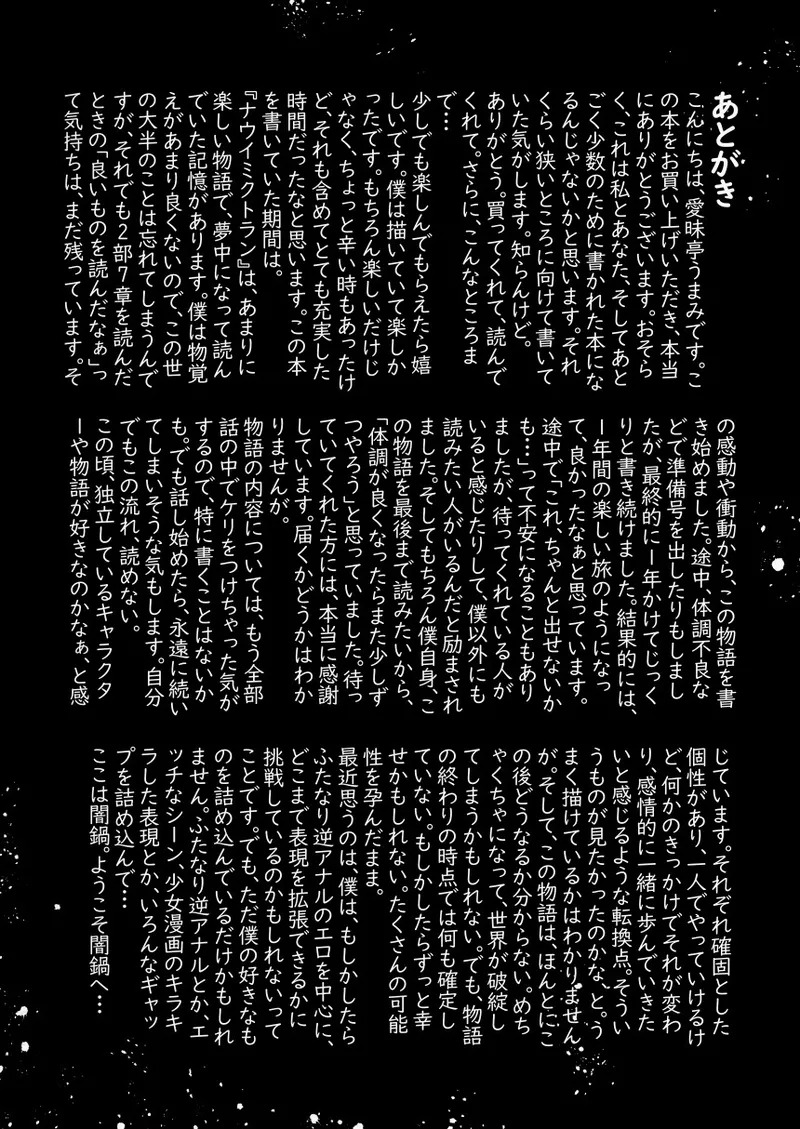 あとがき
こんにちは、愛昧亭うまみです。こ
の本をお買い上げいただき、本当
にありがとうございます。おそら
く、これは私とあなた、そしてあと
ごく少数のために書かれた本にな
るんじゃないかと思います。それ
くらい狭いところに向けて書いて
いた気がします。知らんけど。
ありがとう。買ってくれて、読んで
くれて。さらに、こんなところま
で…
少しでも楽しんでもらえたら嬉
しいです。僕は描いていて楽しか
ったです。もちろん楽しいだけじ
ゃなく、ちょっと辛い時もあったけ
ど、それも含めてとても充実した
時間だったなと思います。この本
を書いていた期間は。
『ナウイミクトラン』は、あまりに
楽しい物語で、夢中になって読ん
でいた記憶があります。僕は物覚
えがあまり良くないので、この世
の大半のことは忘れてしまうんで
すが、それでも2部7章を読んだ
ときの「良いものを読んだなぁ」っ
て気持ちは、まだ残っています。そ
の感動や衝動から、この物語を書
き始めました。途中、体調不良な
どで準備号を出したりもしまし
たが、最終的に1年かけてじっく
りと書き続けました。結果的には、
1年間の楽しい旅のようになっ
て、良かったなぁと思っています。
途中で「これ、ちゃんと出せないか
も…」って不安になることもあり
ましたが、待ってくれている人が
いると感じたりして、僕以外にも
読みたい人がいるんだと励まされ
ました。そしてもちろん僕自身、こ
の物語を最後まで読みたいから、
「体調が良くなったらまた少しず
つやろう」と思っていました。待っ
ていてくれた方には、本当に感謝
しています。届くかどうかはわか
りませんが。
物語の内容については、もう全部
話の中でケリをつけちゃった気が
するので、特に書くことはないか
も。でも話し始めたら、永遠に続い
てしまいそうな気もします。自分
でもこの流れ、読めない。
この頃、独立しているキャラクタ
ーや物語が好きなのかなぁ、と感
じています。それぞれ確固とした
個性があり、一人でやっていけるけ
ど、何かのきっかけでそれが変わ
り、感情的に一緒に歩んでいきた
いと感じるような転換点。そうい
うものが見たかったのかな、と。う
まく描けているかはわかりません
が。そして、この物語は、ほんとにこ
の後どうなるか分からない。めち
ゃくちゃになって、世界が破綻し
てしまうかもしれない。でも、物語
の終わりの時点では何も確定し
ていない。もしかしたらずっと幸
せかもしれない。たくさんの可能
性を孕んだまま。
最近思うのは、僕は、もしかしたら
ふたなり逆アナルのエロを中心に、
どこまで表現を拡張できるかに
挑戦しているのかもしれないって
ことです。でも、ただ僕の好きなも
のを詰め込んでいるだけかもしれ
ません。ふたなり逆アナルとか、エ
ッチなシーン、少女漫画のキラキ
ラした表現とか、いろんなギャッ
プを詰め込んで…
ここは闇鍋。ようこそ闇鍋へ…